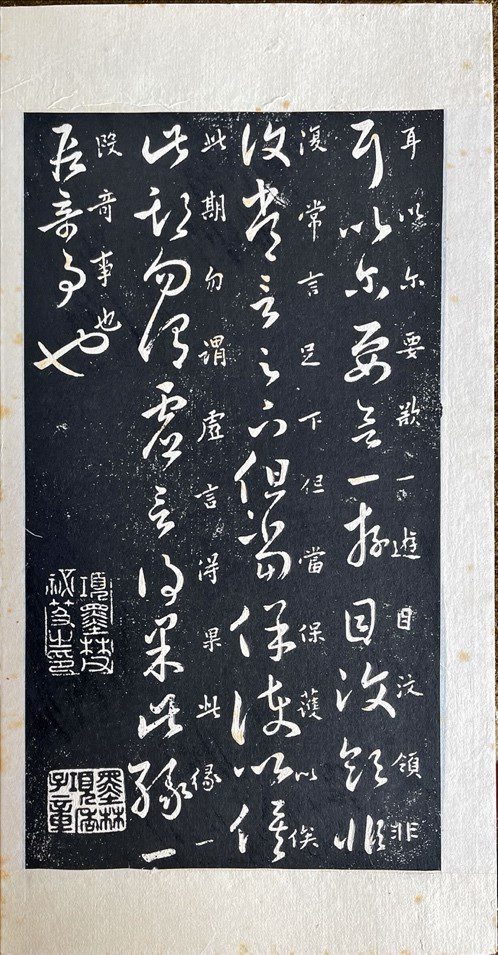 耳以尔要欲一遊目汶領非
耳以尔要欲一遊目汶領非
復常言足下但當保護以俟
復常言足下但當保護以俟
此期勿謂虛言得果此缘一
此期勿謂虛言得果此缘一
段竒事也
段竒事也
項墨林父
祕笈之印
墨林
項季
子章